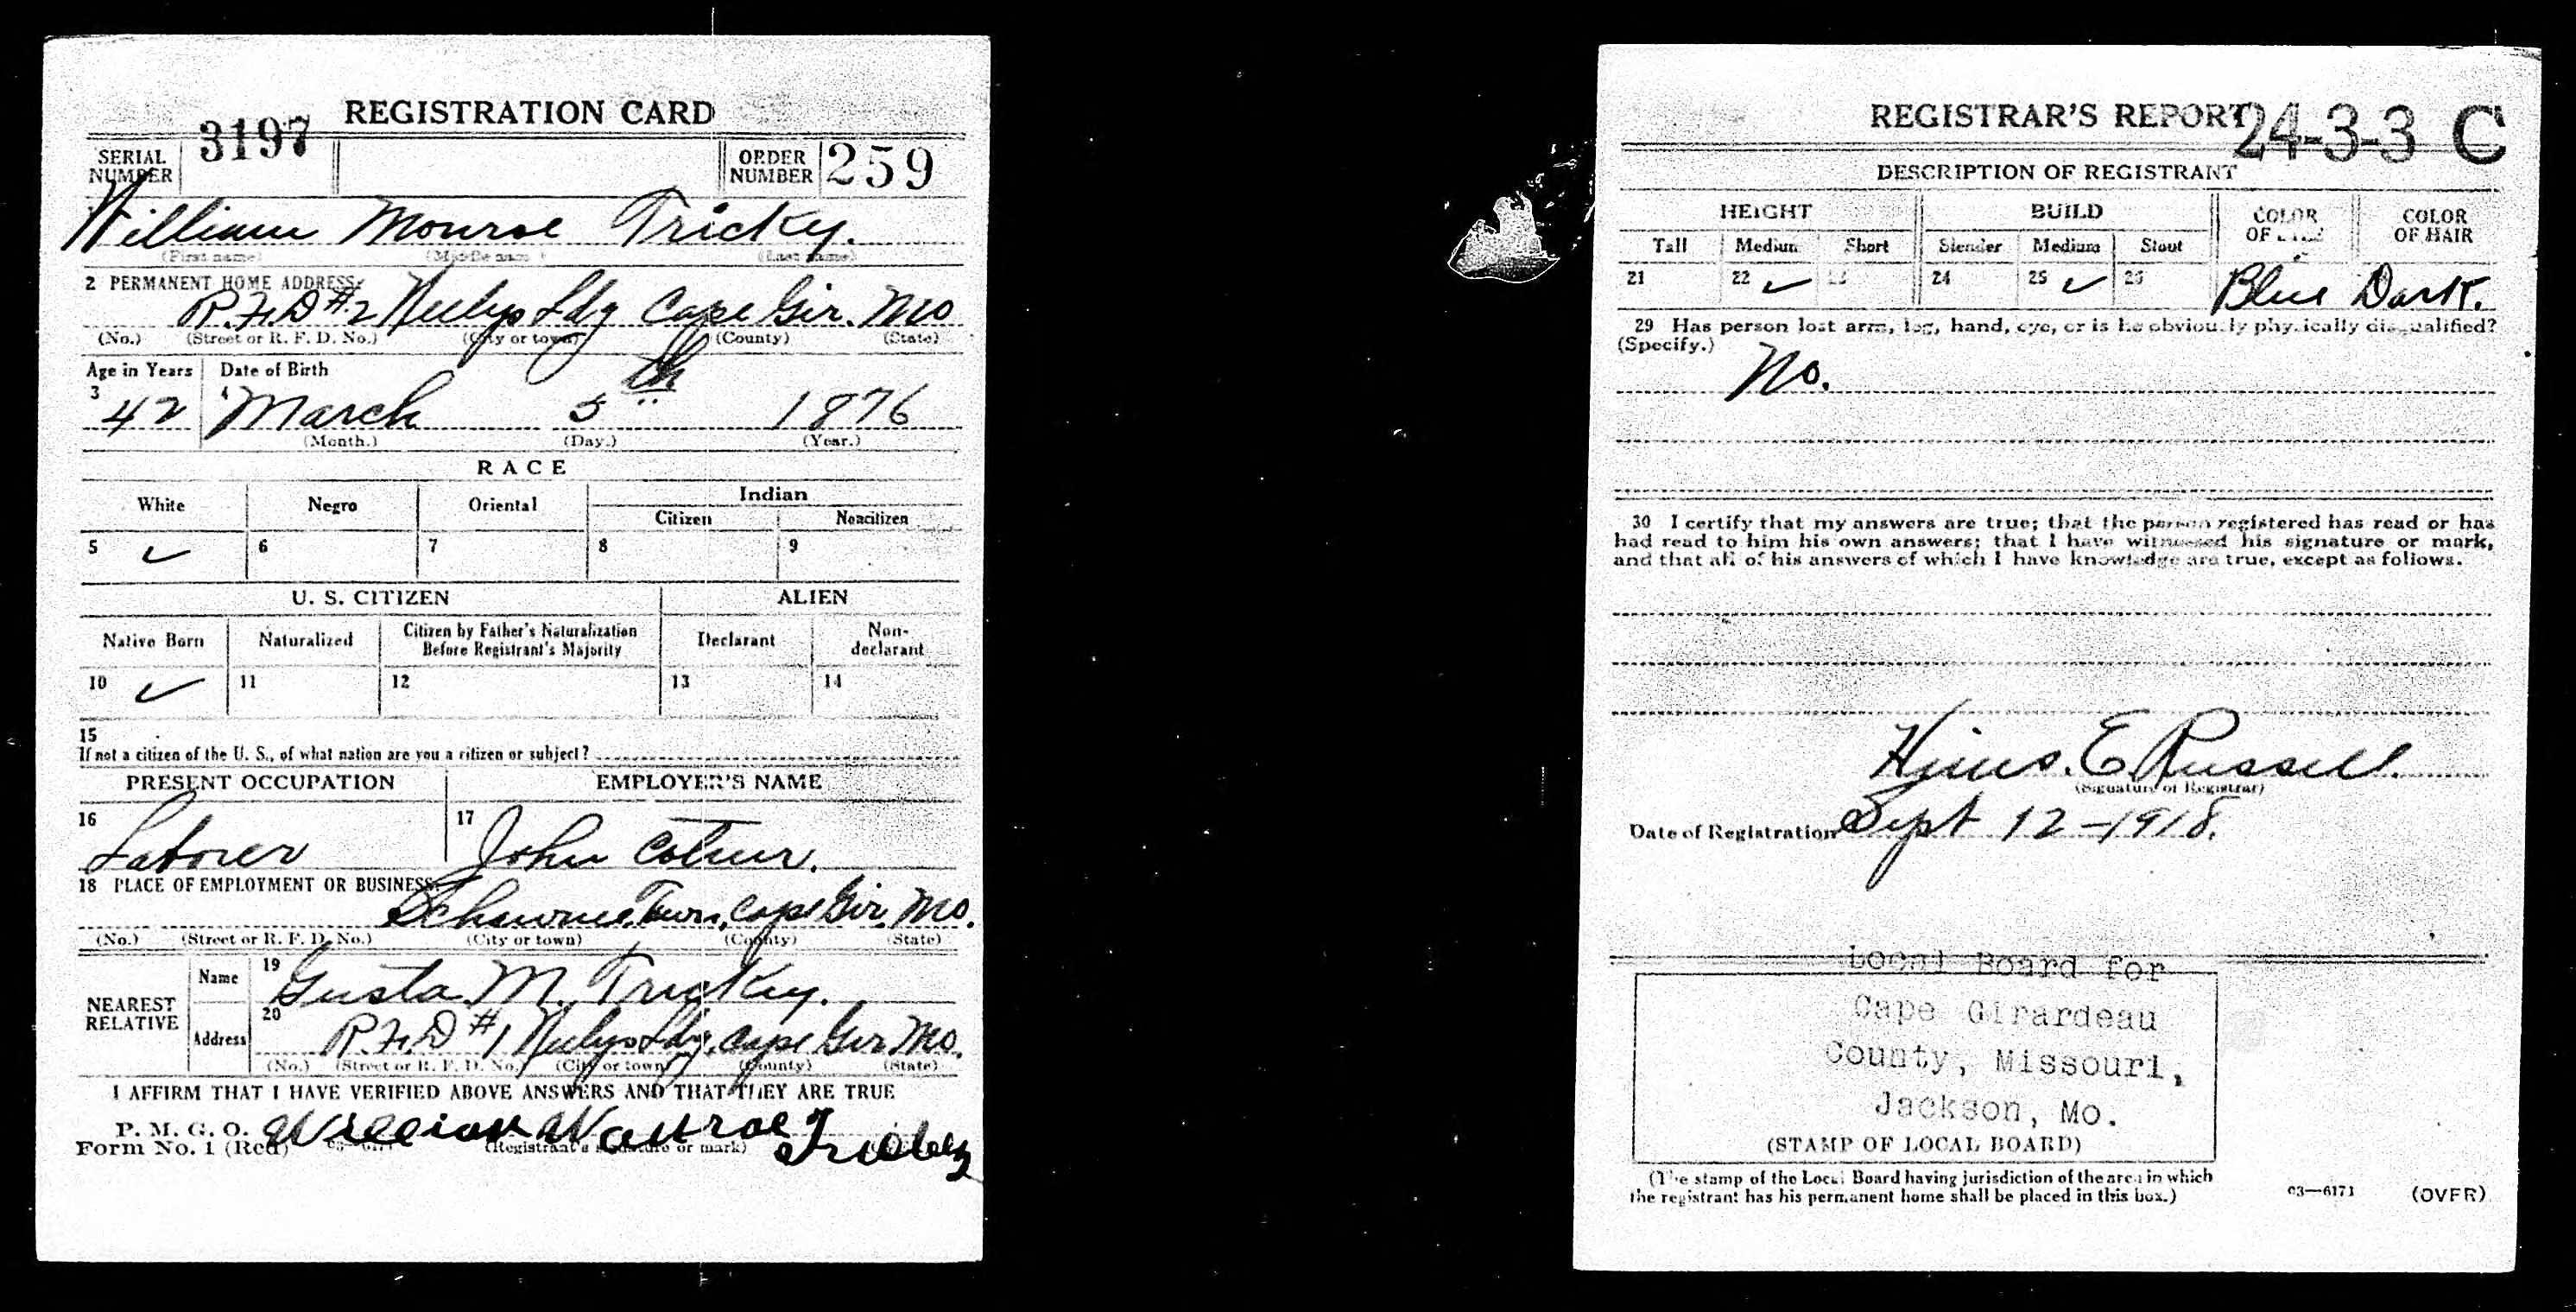 REGISTRATION CARD
SERIAL NUMBER 3197 ORDER NUMBER 259
William Monroe Tricky.
(First name) (Middle name) (Last name)
2 PERMANENT HOME ADDRESS:
R.F.D #2 Neelys Ldg Cape Gir. Mo
(No.) (Street or R. F. D. No.) (City or town) (County) (State)
Age in Years Date of Birth
3 42 4 March 5th 1876
(Month.) (Day.) (Year.)
RACE
White Negro Oriental Indian
Citizen Noncitizen
5 ✓ 6 7 8 9
U. S. CITIZEN ALIEN
Native Born Naturalized Citizen by Father's Naturalization Before Registrant's Majority Declarant Non-declarant
10 ✓ 11 12 13 14
15
If not a citizen of the U. S., of what nation are you a citizen or subject?
PRESENT OCCUPATION EMPLOYER'S NAME
16 Laborer 17 John
18 PLACE OF EMPLOYMENT OR BUSINESS:
Town, Cape Gir. Mo.
(No.) (Street or R. F. D. No.) (City or town) (County) (State)
NEAREST RELATIVE
Name 19 Gusta M. Tricky.
Address 20 R.F.D #1 Neelys Ldg, Cape Gir Mo.
(No.) (Street or R. F. D. No.) (City or town) (County) (State)
I AFFIRM THAT I HAVE VERIFIED ABOVE ANSWERS AND THAT THEY ARE TRUE
P. M. G. O.
Form No. 1 (Red) William Monroe
(Registrant's signature or mark)
REGISTRAR'S REPORT 24-3-3 C
DESCRIPTION OF REGISTRANT
HEIGHT BUILD COLOR OF EYES COLOR OF HAIR
Tall Medium Short Slender Medium Stout
21 22 ✓ 23 24 25 ✓ 26 Blue Dark.
29 Has person lost arm, leg, hand, eye, or is he obviously physically disqualified?
(Specify.)
No.
30 I certify that my answers are true; that the person registered has read or has
had read to him his own answers; that I have witnessed his signature or mark,
and that all of his answers of which I have knowledge are true, except as follows.
E. Russell.
(Signature of Registrar)
Date of Registration Sept 12-1918.
Local Board for
Cape Girardeau
County, Missouri,
Jackson, Mo.
(STAMP OF LOCAL BOARD)
(The stamp of the Local Board having jurisdiction of the area in which
the registrant has his permanent home shall be placed in this box.)
03—6171 (OVER)